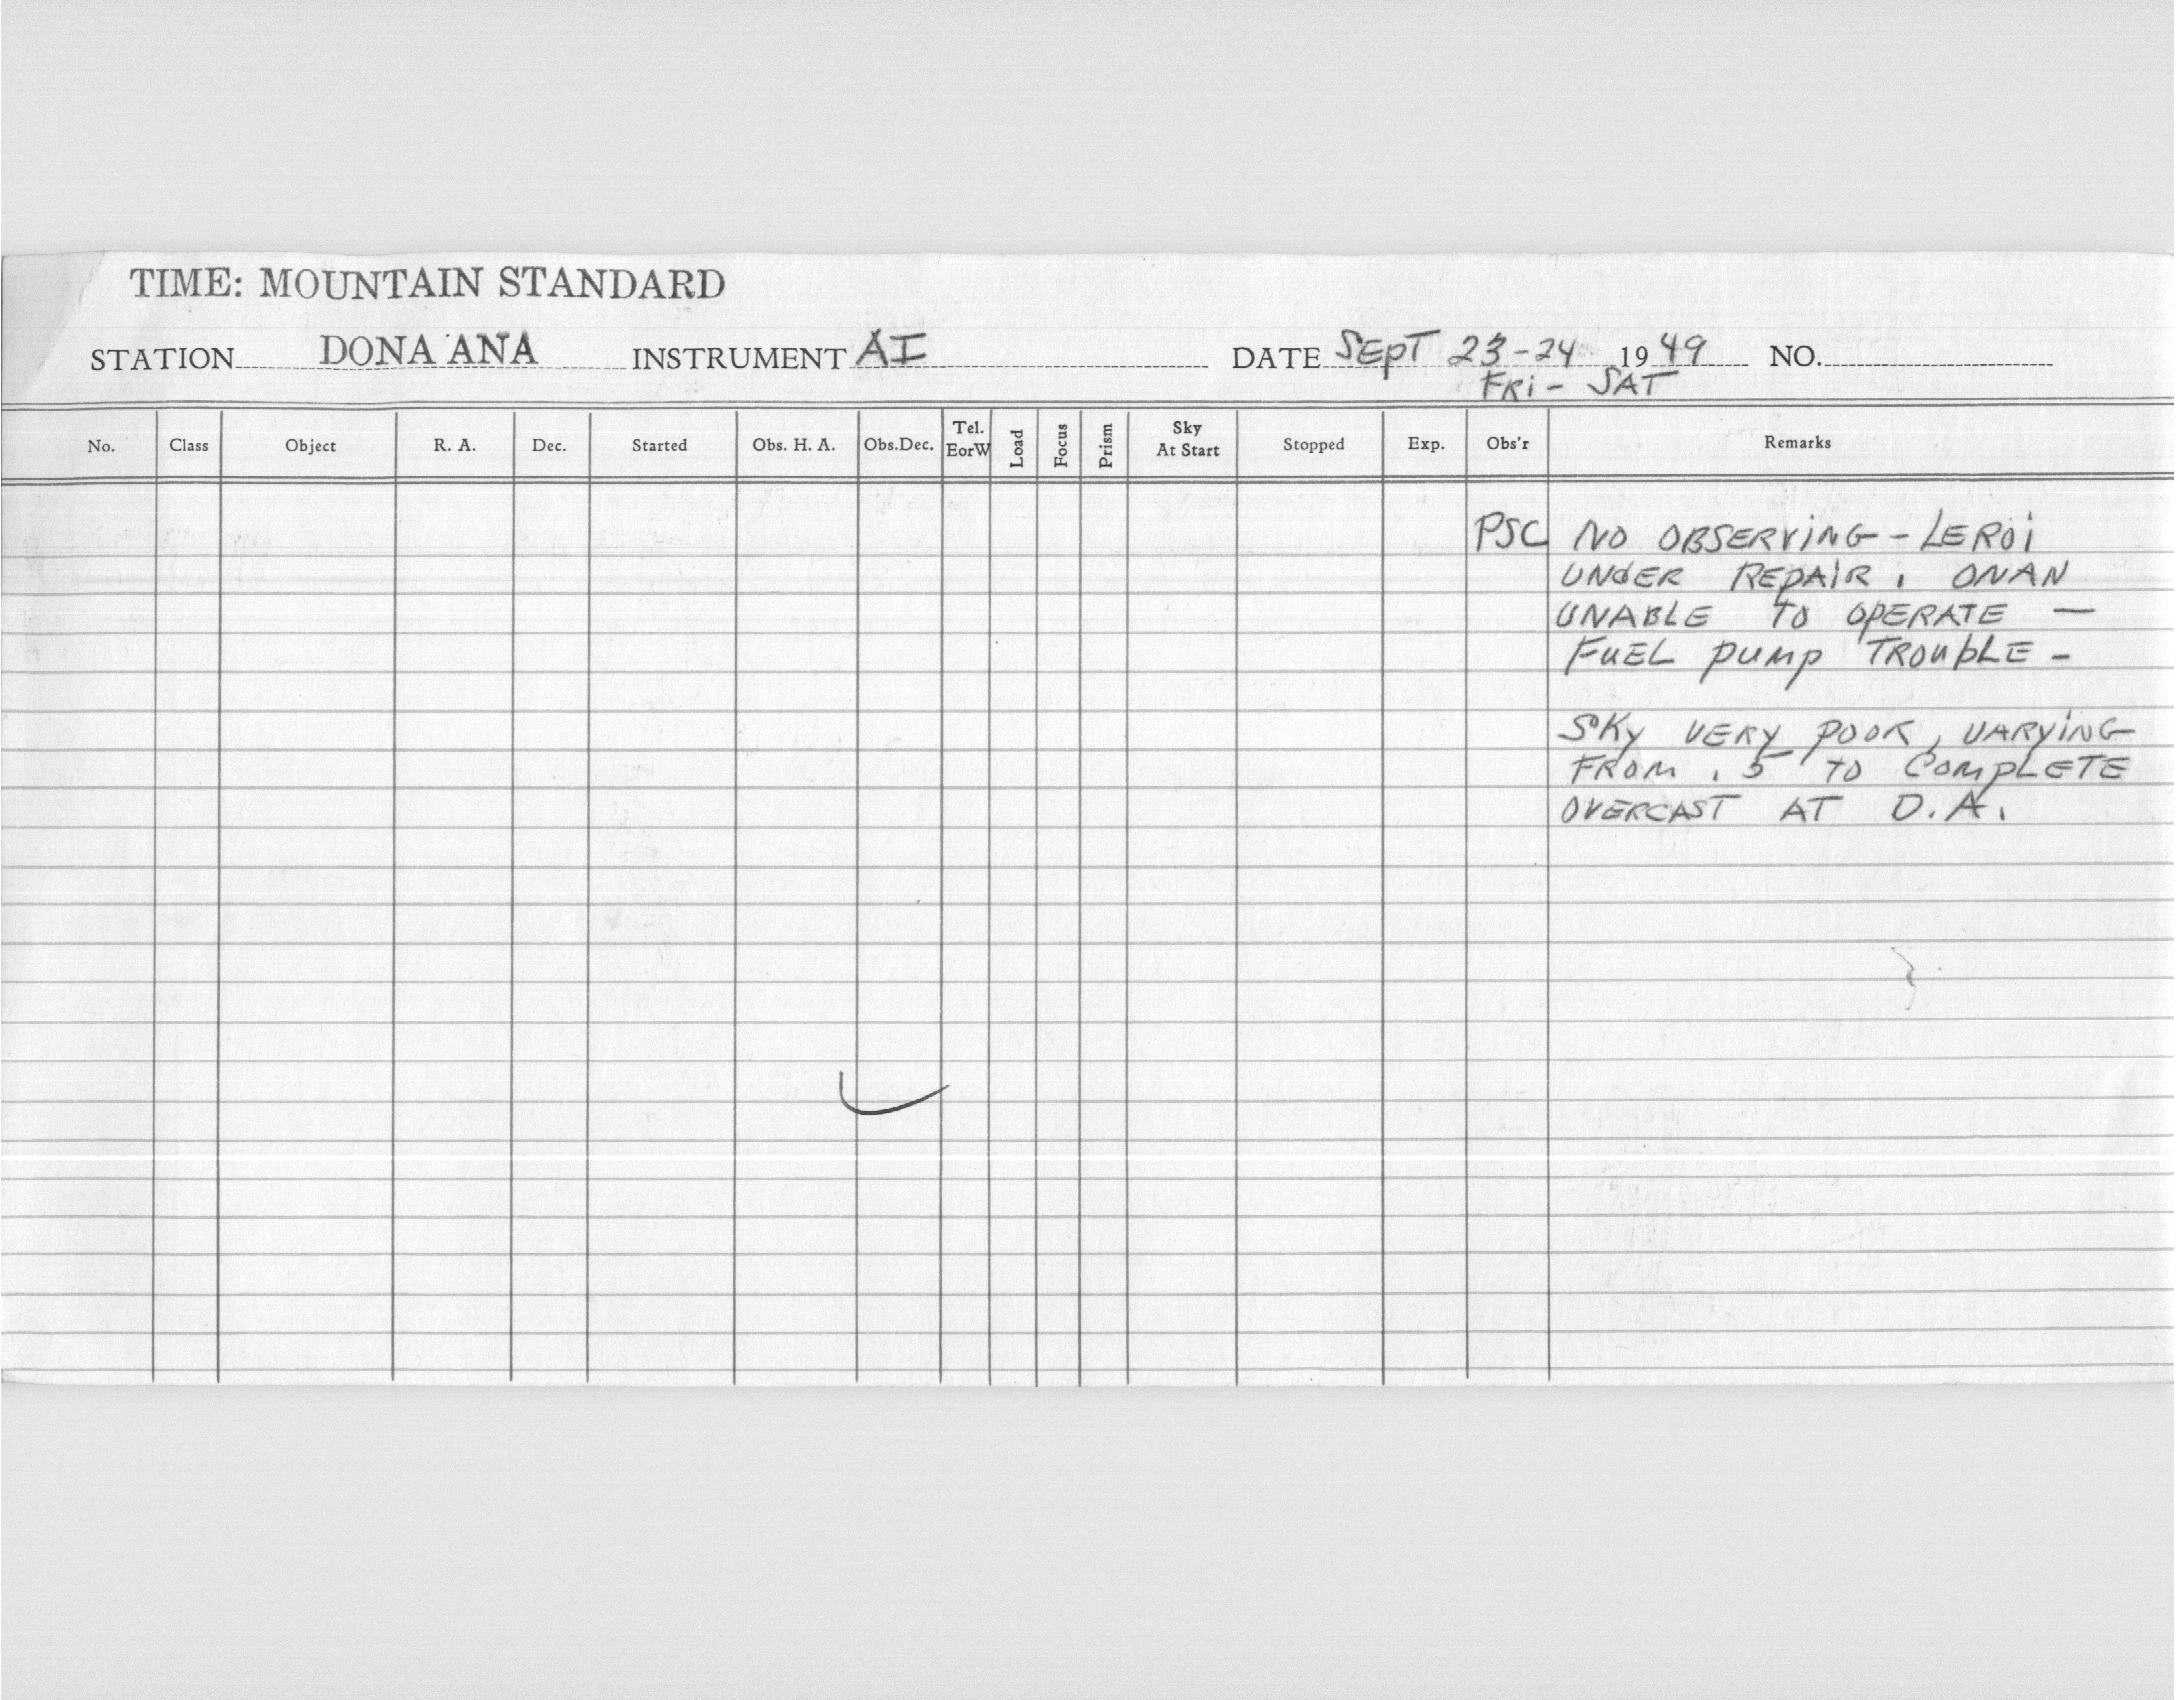 TIME: MOUNTAIN STANDARD
STATION DONA ANA INSTRUMENT AI DATE SEPT 23-24 1949 NO.
FRi - SAT
No. Class Object R. A. Dec. Started Obs. H. A. Obs.Dec. Tel. EorW Load Focus Prism Sky At Start Stopped Exp. Obs'r Remarks
PSC NO OBSERViNG - LEROi
UNdER REPAIR. ONAN
UNABLE TO OPERATE —
FUEL pump TROUbLE -
SKy VERY POOR, VARYiNG
FROM .5 TO COMPLETE
OVERCAST AT D.A.